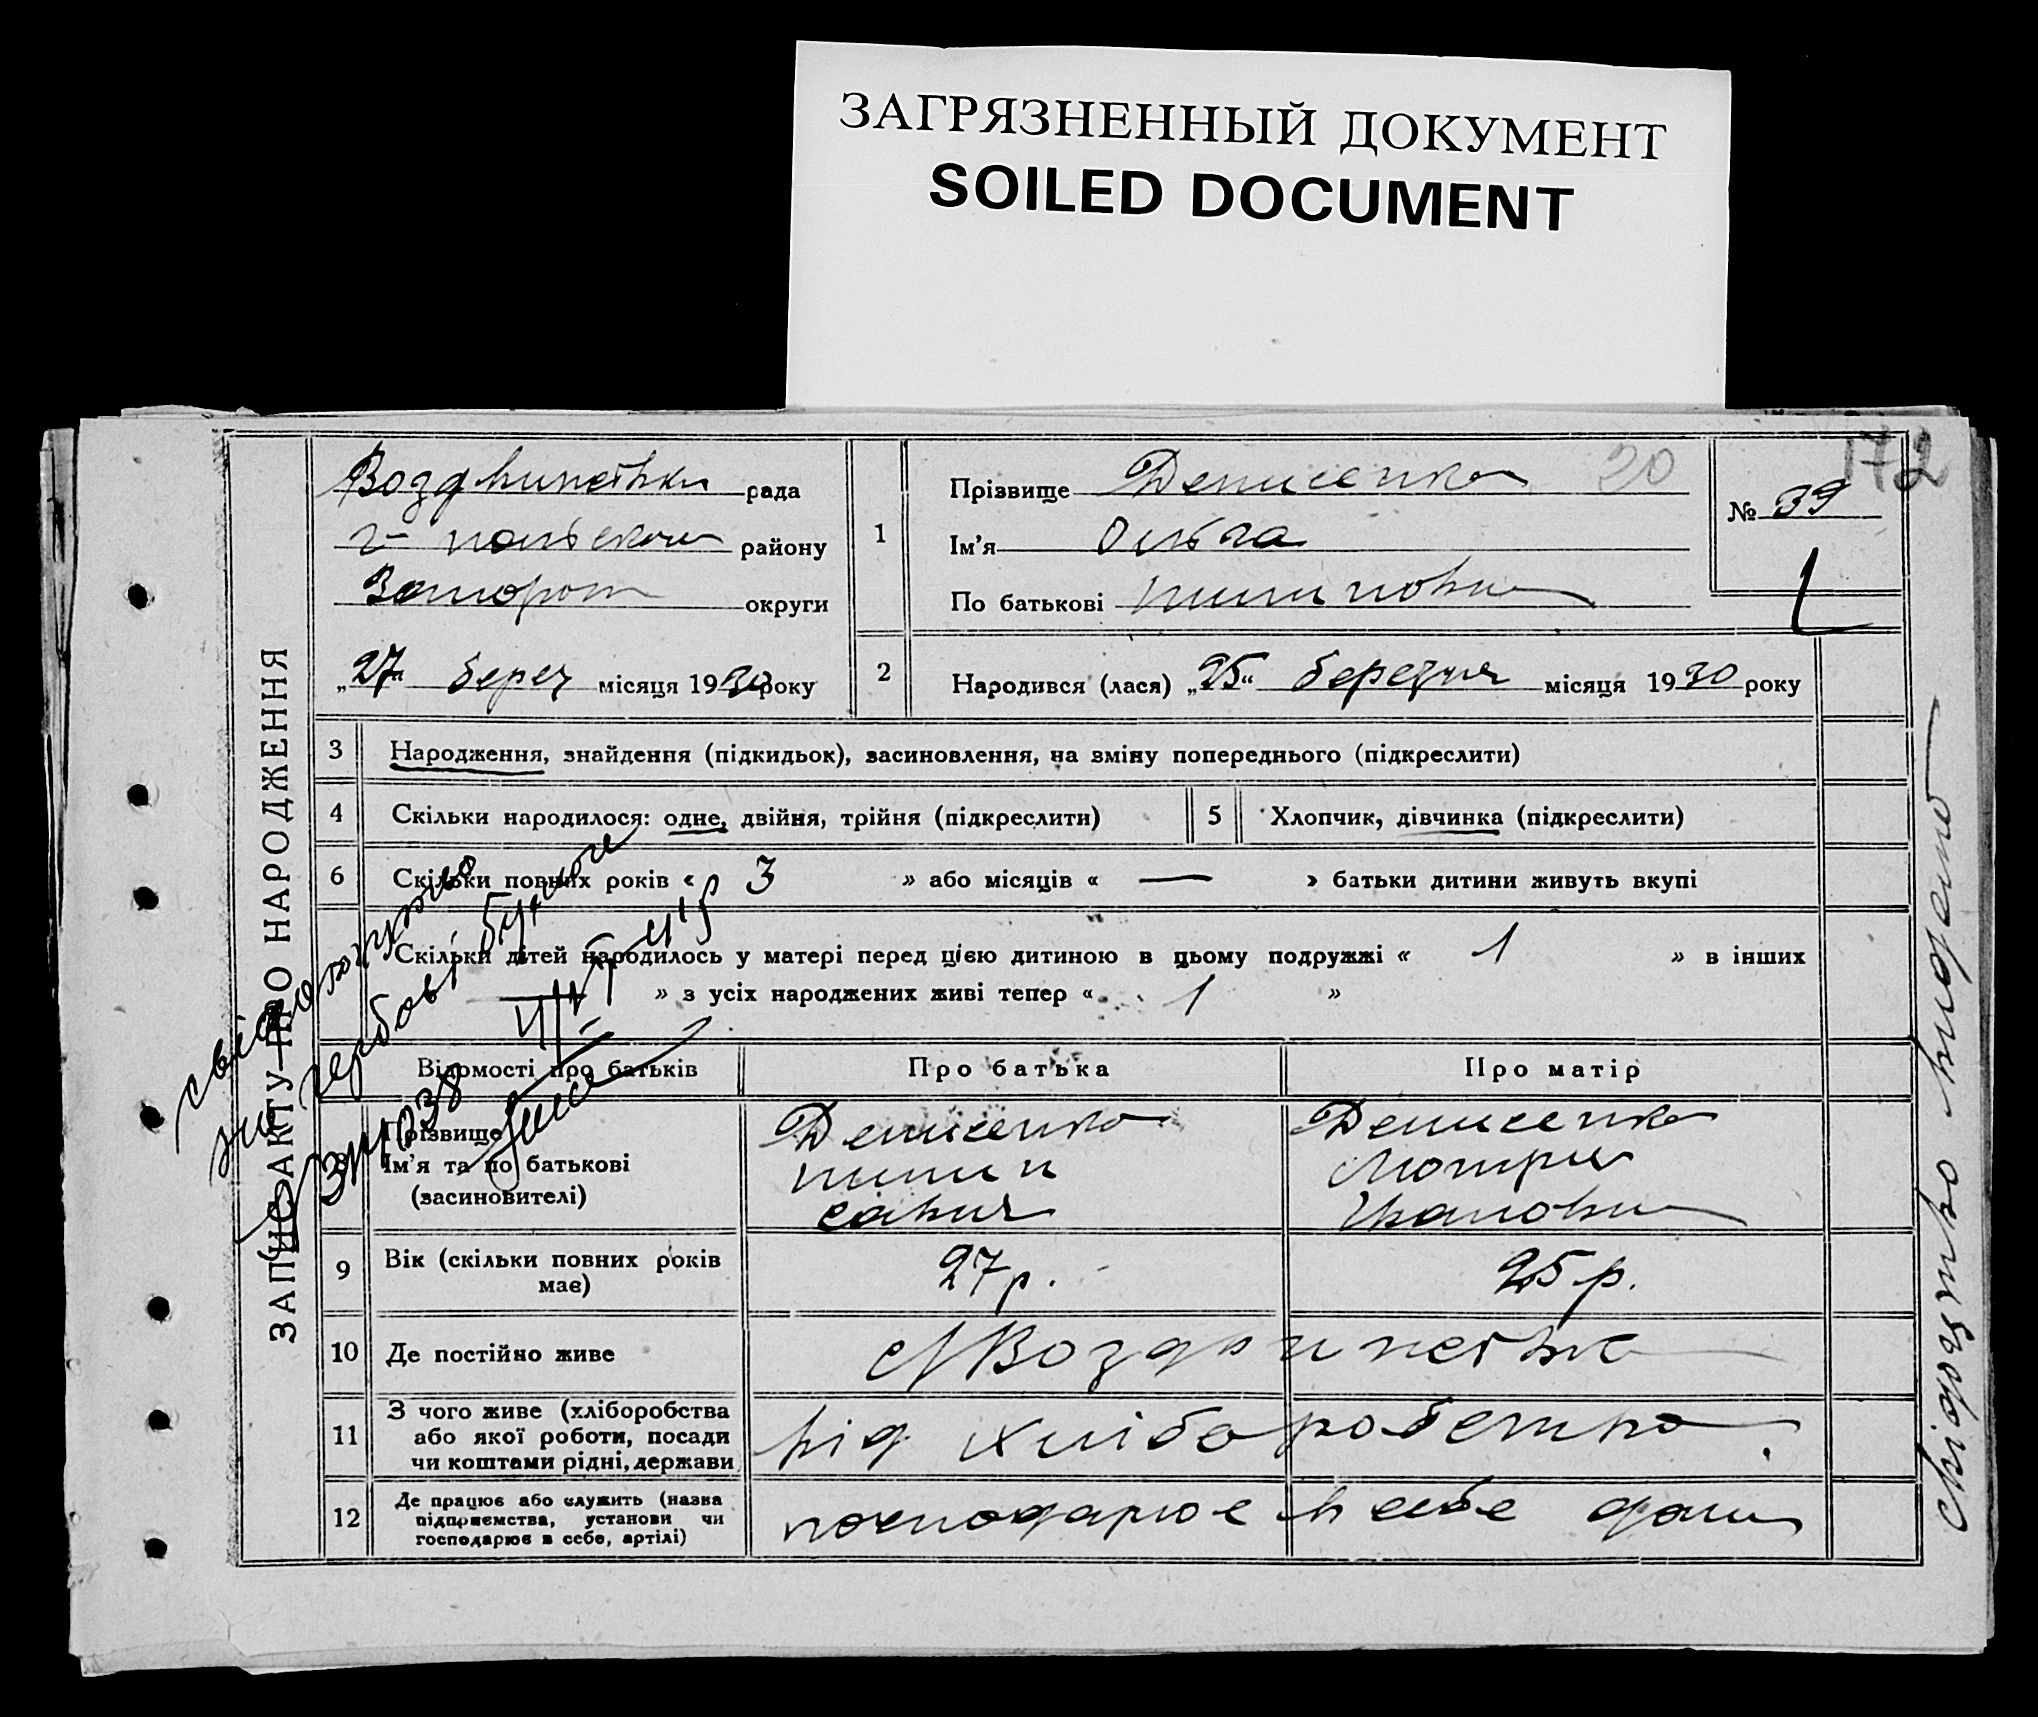 ЗАГРЯЗНЕННЫЙ ДОКУМЕНТ
SOILED DOCUMENT
172
ЗАПИС АКТУ ПРО НАРОДЖЕННЯ
Воздвиневки рада
г-польского району
Запорож округи
„27“ берез місяця 1930 року
1
Прізвище Денисенко 20
Ім’я Ольга
По батькові Пилиповна
№ 39
2
Народився (лася) „25“ березня місяця 1930 року
3 Народження, знайдення (підкидьок), засиновлення, на зміну попереднього (підкреслити)
4 Скільки народилося: одне, двійня, трійня (підкреслити)
5 Хлопчик, дівчинка (підкреслити)
6 Скільки повних років « 3 » або місяців « — » батьки дитини живуть вкупі
Скільки дітей народилось у матері перед цією дитиною в цьому подружжі « 1 » в інших
» з усіх народжених живі тепер « 1 »
Відомості про батьків
Про батька
Про матір
Прізвище
Ім’я та по батькові
(засиновителі)
Денисенко
Пилип
Савич
Денисенко
Мотря
Ивановна
9 Вік (скільки повних років
має)
27 р.
25 р.
10 Де постійно живе
Воздвиневка
11 З чого живе (хліборобства
або якої роботи, посади
чи коштами рідні, держави
від хліборобства
12 Де працює або служить (назва
підприємства, установи чи
господарює в себе, артілі)
господарює в себе дома
свідоцтво видано